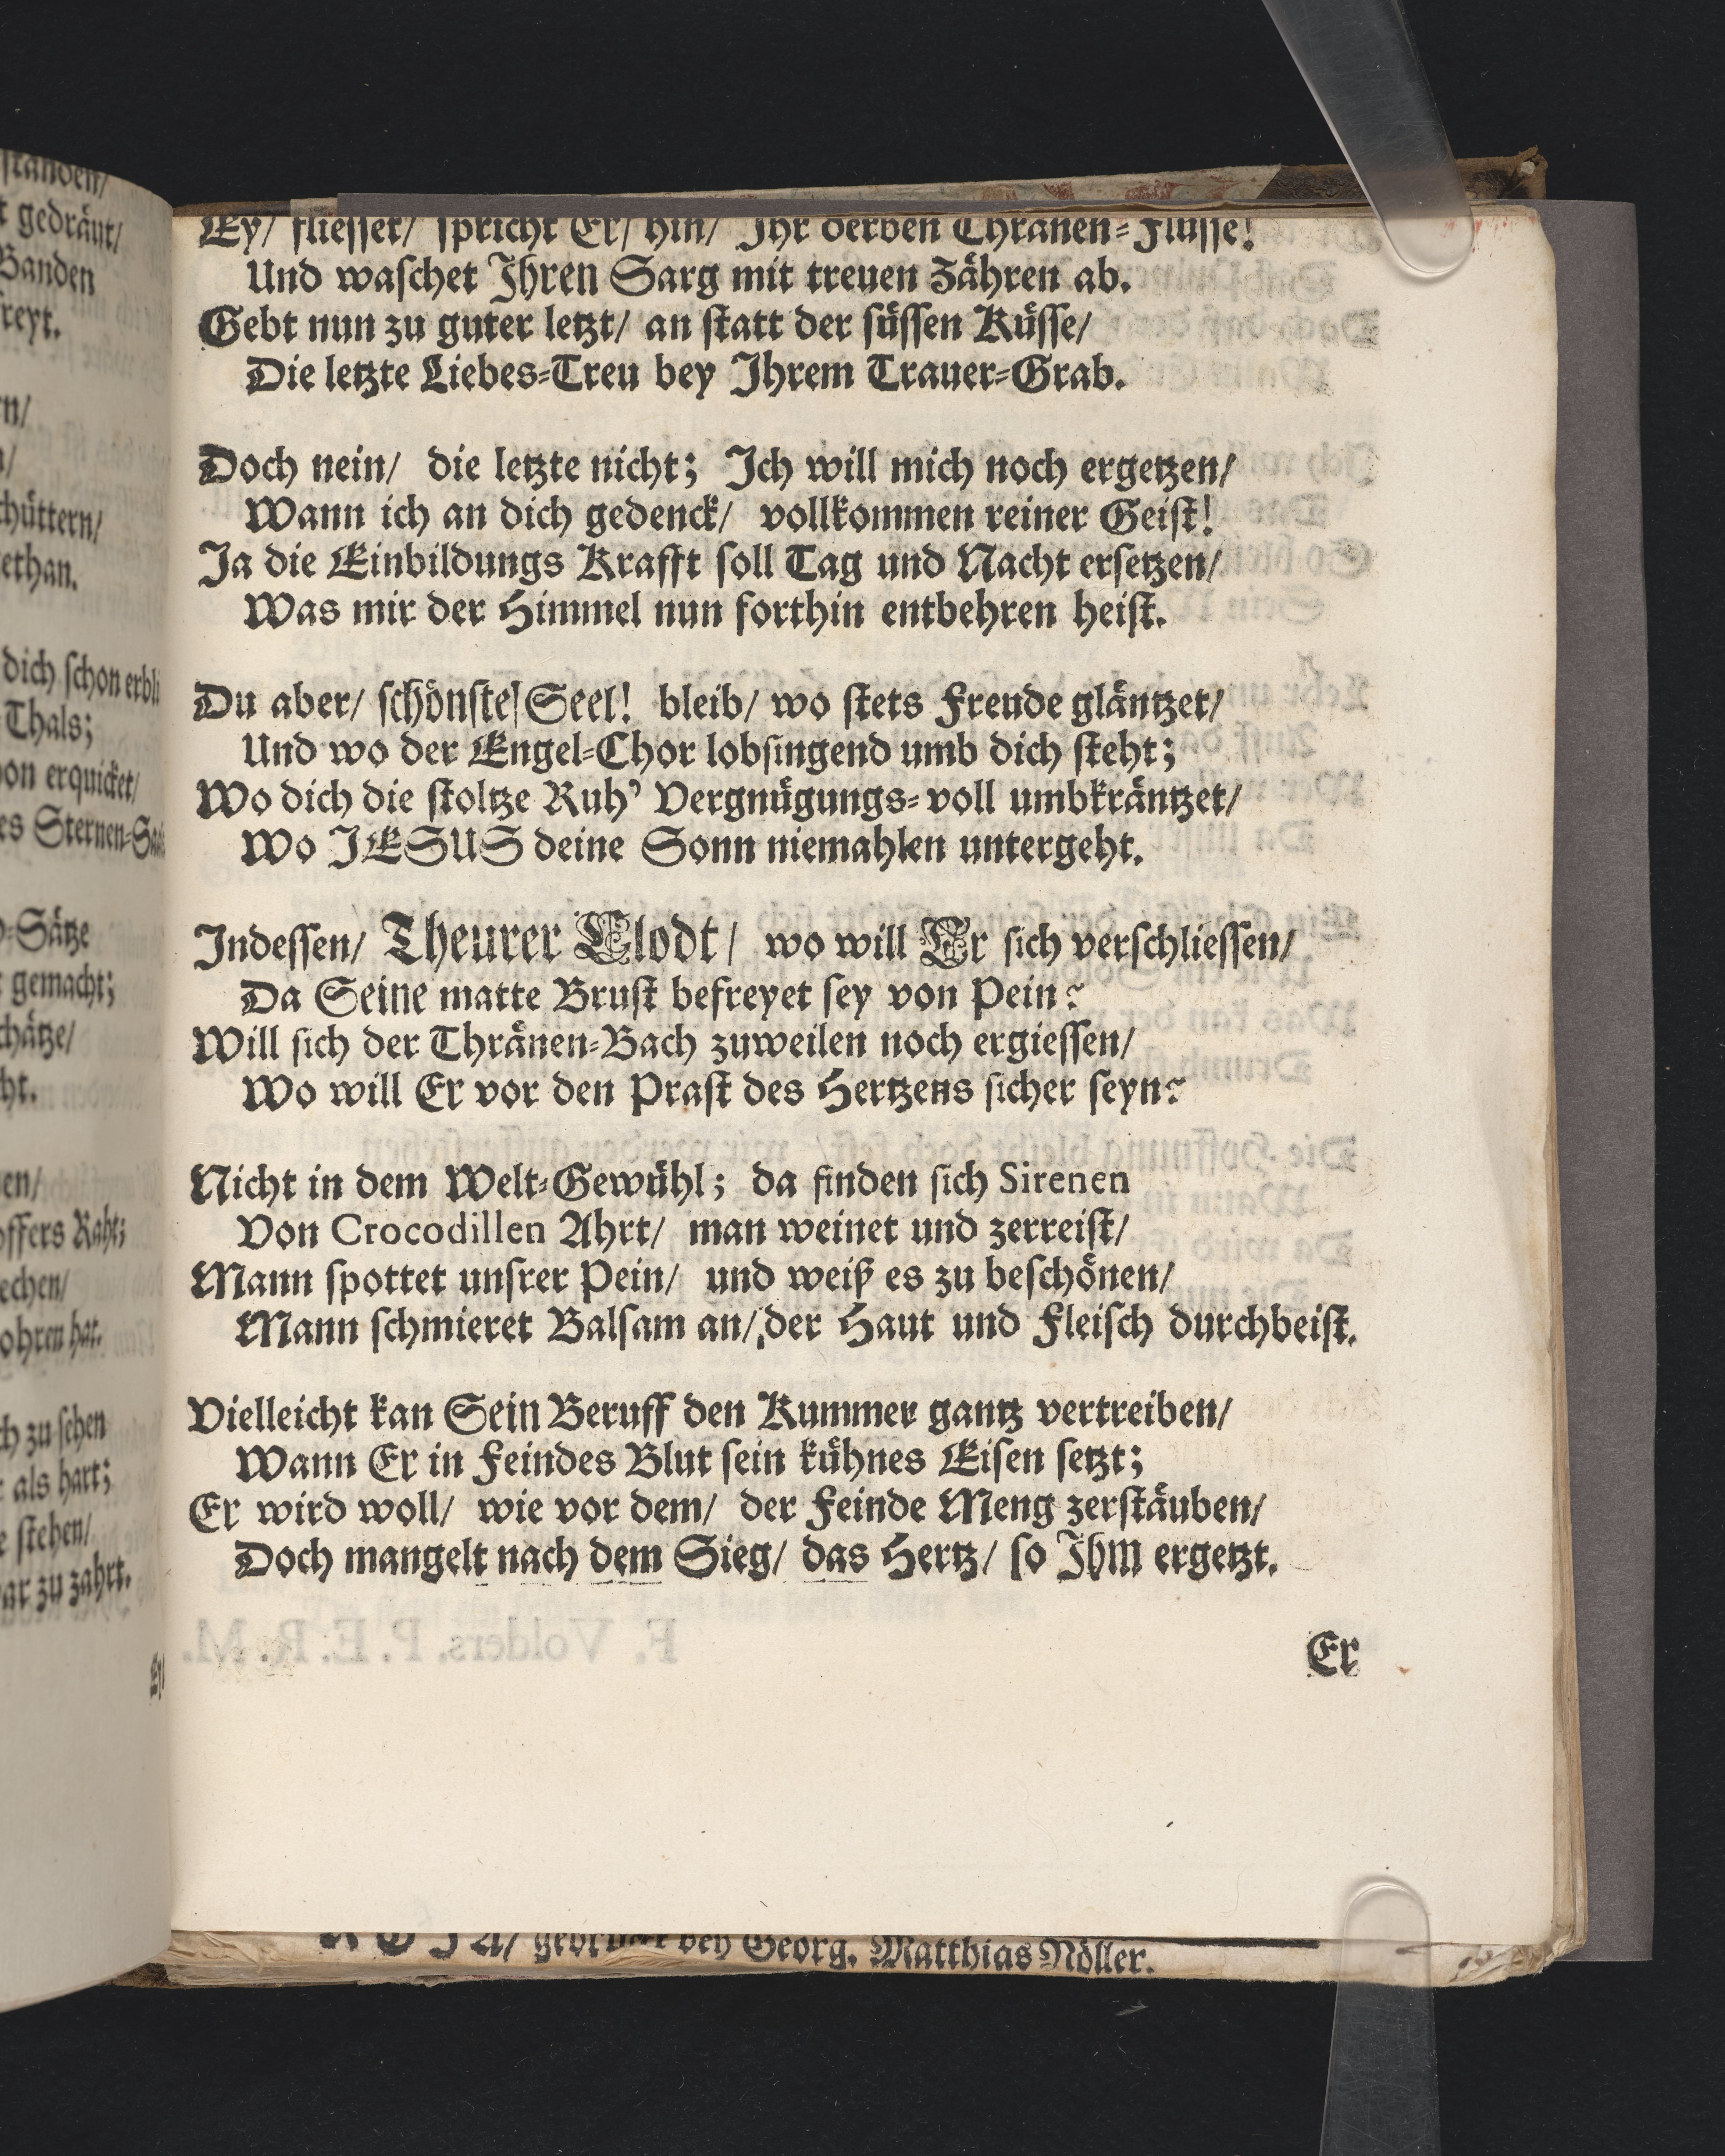 standen/
gedräut/
Banden
reyt.
chüttern/
ethan.
dich schon erbli
Thals;
von erquicket/
es Sternen-Saa
Sätze
gemacht;
chätze/
offers Raht;
echen/
ohren hat.
ch zu sehen
als hart;
e stehen/
ar zu zahrt.
Ey/ fliesset/ spricht Er/ hin/ Ihr derben Thränen-Flüsse!
Und waschet Ihren Sarg mit treuen Zähren ab.
Gebt nun zu guter letzt/ an statt der süssen Küsse/
Die letzte Liebes-Treu bey Ihrem Trauer-Grab.
Doch nein/ die letzte nicht; Ich will mich noch ergetzen/
Wann ich an dich gedenck/ vollkommen reiner Geist!
Ja die Einbildungs Krafft soll Tag und Nacht ersetzen/
Was mir der Himmel nun forthin entbehren heist.
Du aber/ schönste Seel! bleib/ wo stets Freude gläntzet/
Und wo der Engel-Chor lobsingend umb dich steht;
Wo dich die stoltze Ruh' Vergnügungs-voll umbkräntzet/
Wo JESUS deine Sonn niemahlen untergeht.
Indessen/ Theurer Clodt/ wo will Er sich verschliessen/
Da Seine matte Brust befreyet sey von Pein?
Will sich der Thränen-Bach zuweilen noch ergiessen/
Wo will Er vor den Prast des Hertzens sicher seyn?
Nicht in dem Welt-Gewühl; da finden sich Sirenen
Von Crocodillen Ahrt/ man weinet und zerreist/
Mann spottet unsrer Pein/ und weiß es zu beschönen/
Mann schmieret Balsam an/ der Haut und Fleisch durchbeist.
Vielleicht kan Sein Beruff den Kummer gantz vertreiben/
Wann Er in Feindes Blut sein kühnes Eisen setzt;
Er wird woll/ wie vor dem/ der Feinde Meng zerstäuben/
Doch mangelt nach dem Sieg/ das Hertz/ so Ihm ergetzt.
Er
gedruckt bey Georg. Matthias Nöller.